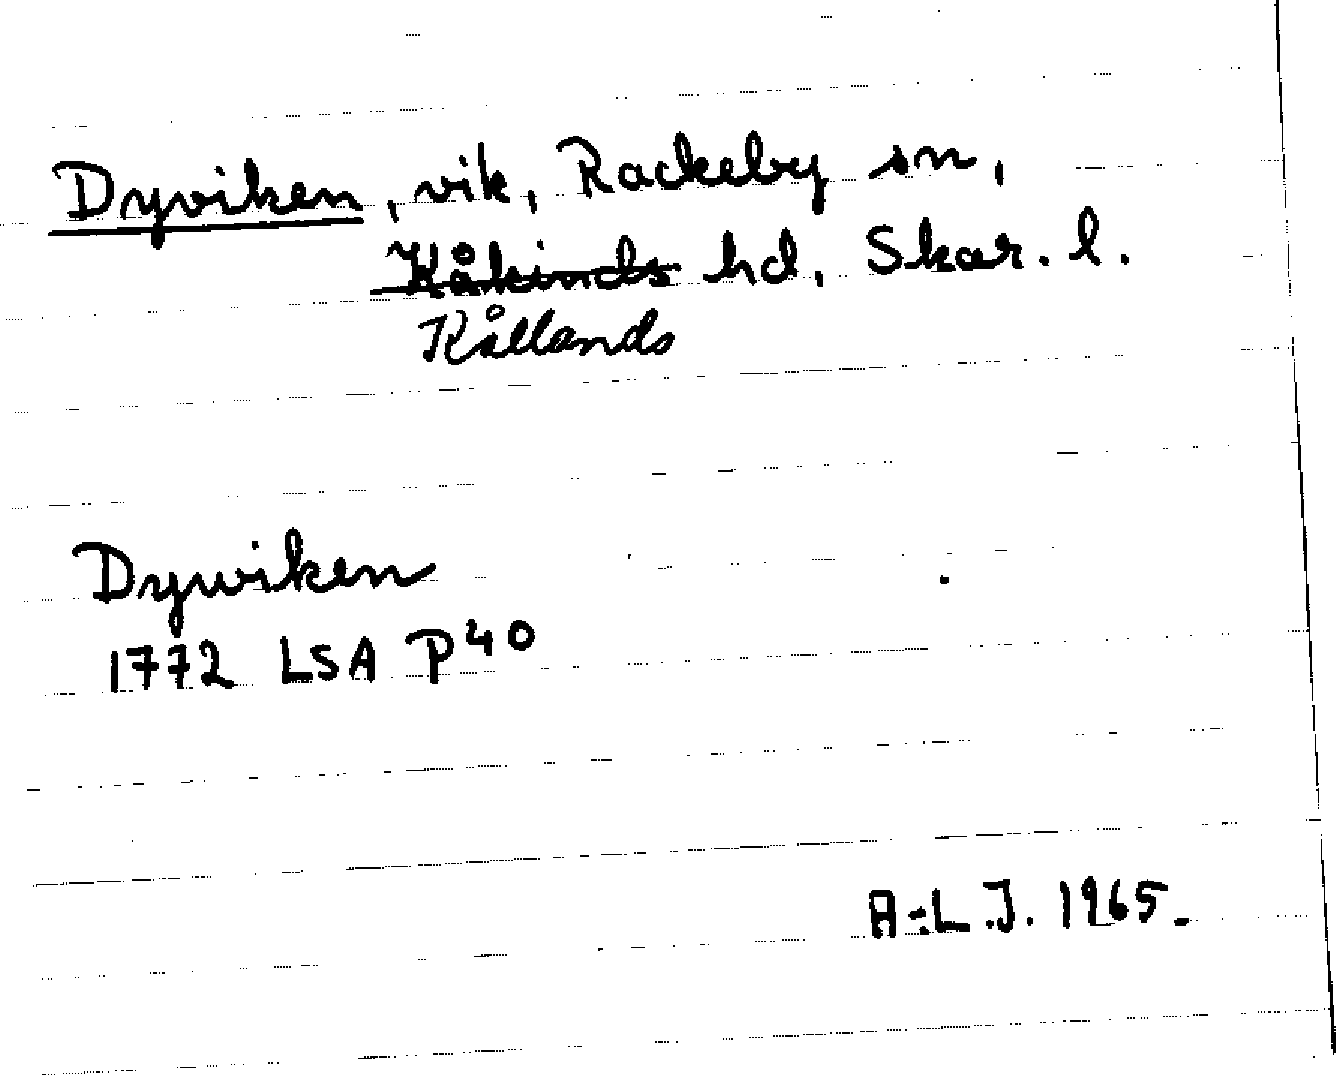 Dyviken, vik, Rackeby sn,
Kåkinds hd, Skar. l.
Kållands
Dywiken
1772 LSA P40
A-L.J. 1965.